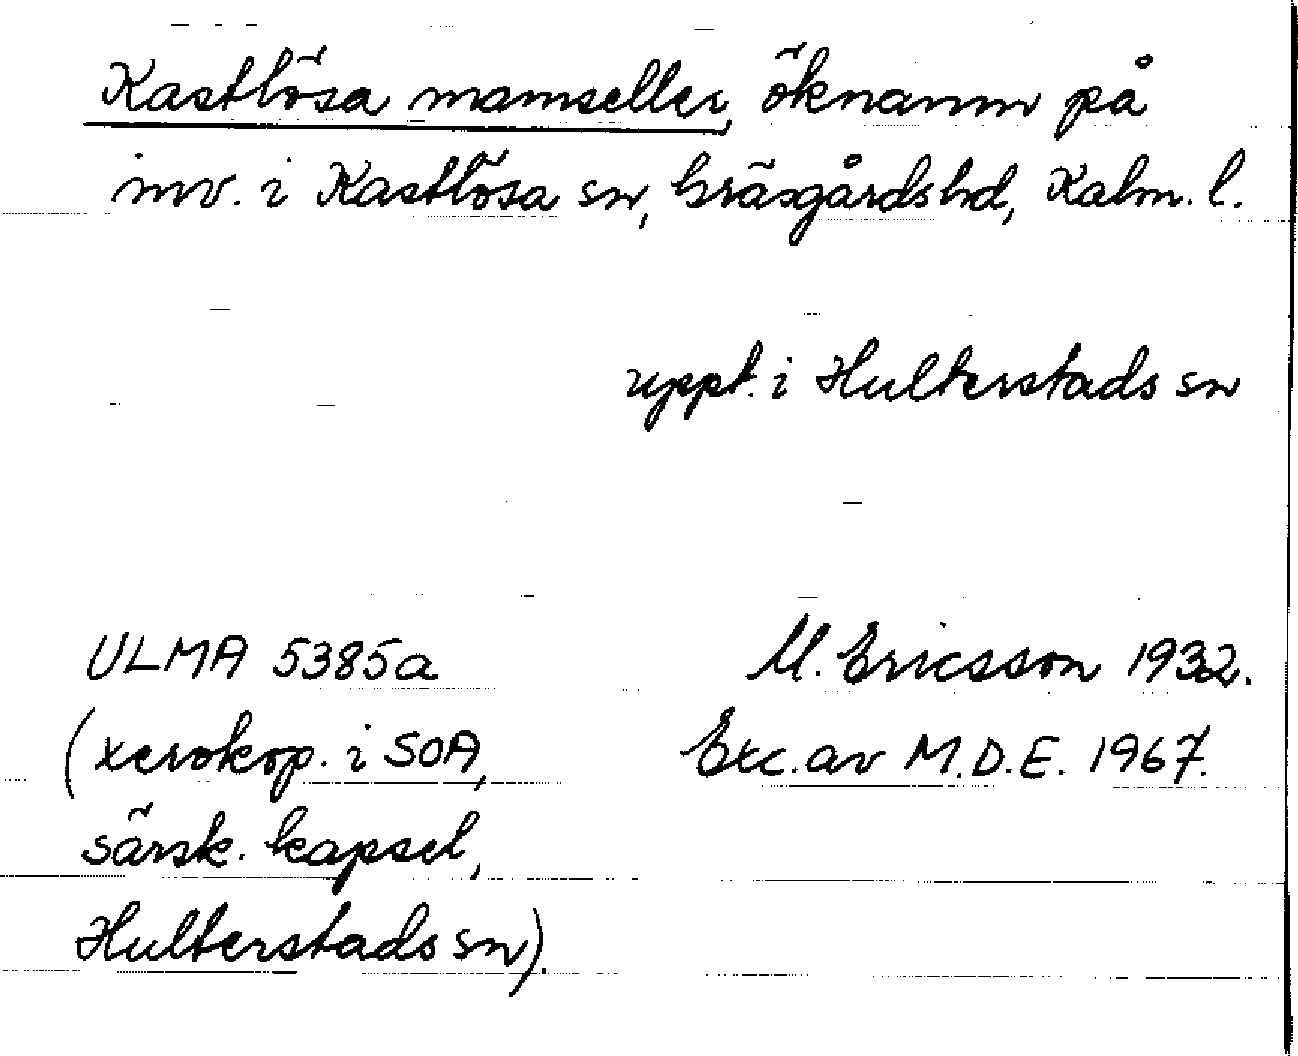 Kastlösa mamseller, öknamn på
inv. i Kastlösa sn, Gräsgårds hd, Kalm. l.
uppt. i Hulterstads sn
ULMA 5385a
M. Ericsson 1932.
(xerokop. i SOA,
Exc. av M.D.E. 1967.
särsk. kapsel,
Hulterstads sn).